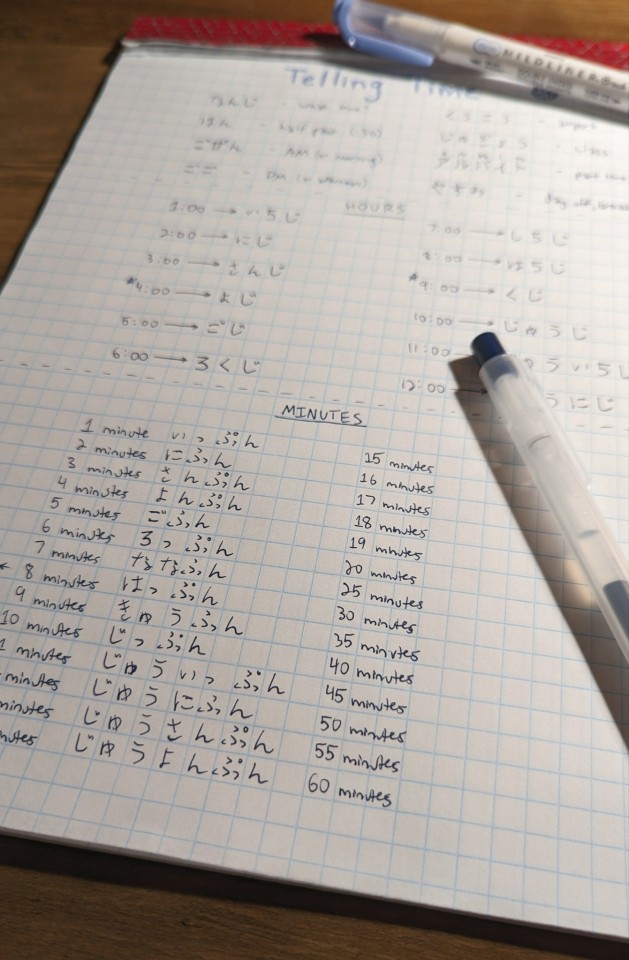 MILDLINER
Telling Time
なんじ
はん - half past (:30)
ごぜん - AM (or morning)
ごご - PM (or afternoon)
HOURS
1:00 → いちじ
2:00 → にじ
3:00 → さんじ
*4:00 → よじ
5:00 → ごじ
6:00 → ろくじ
7:00 → しちじ
8:00 → はちじ
*9:00 → くじ
10:00 → じゅうじ
11:00 → ゅういちじ
12:00 うにじ
MINUTES
1 minute いっぷん
2 minutes にふん
3 minutes さんぷん
4 minutes よんぷん
5 minutes ごふん
6 minutes ろっぷん
7 minutes ななふん
8 minutes はっぷん
9 minutes きゅうふん
10 minutes じっぷん
1 minutes じゅういっぷん
minutes じゅうにふん
minutes じゅうさんぷん
nutes じゅうよんぷん
15 minutes
16 minutes
17 minutes
18 minutes
19 minutes
20 minutes
25 minutes
30 minutes
35 minutes
40 minutes
45 minutes
50 minutes
55 minutes
60 minutes